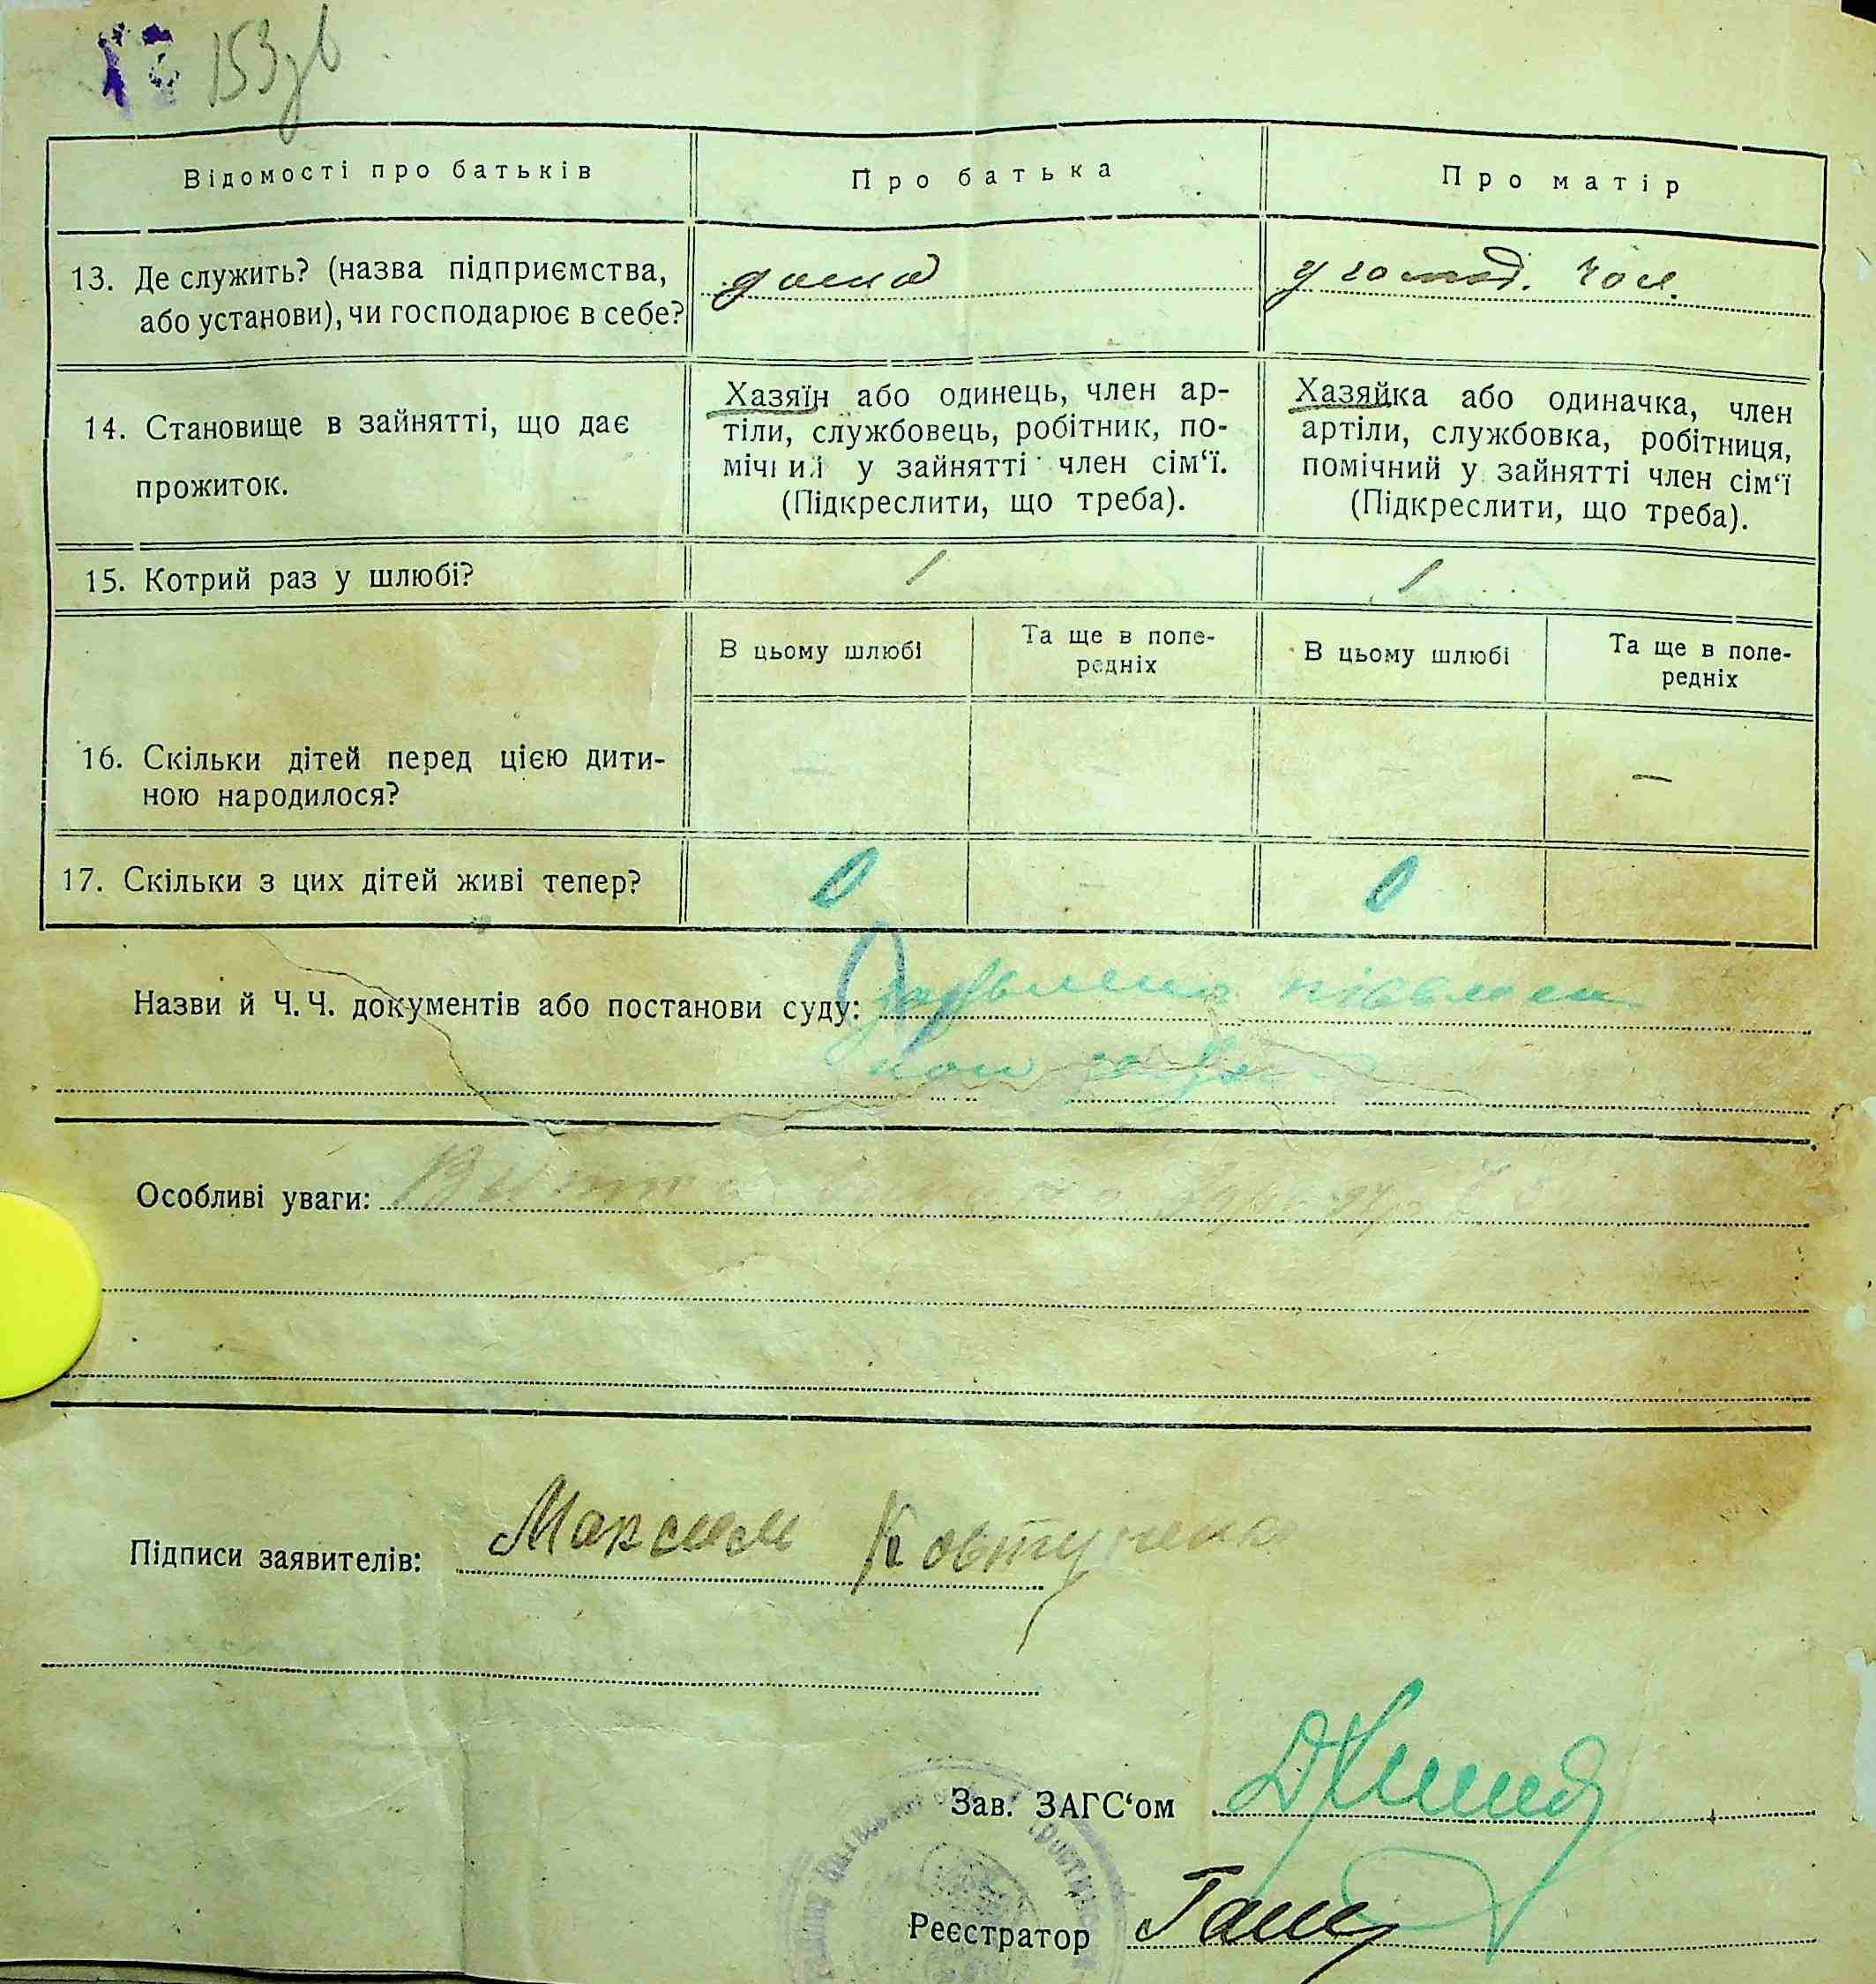 153зв
Відомості про батьків
Про батька
Про матір
13. Де служить? (назва підприємства,
або установи), чи господарює в себе?
дома
у господ. чол.
14. Становище в зайнятті, що дає
прожиток.
Хазяїн або одинець, член ар-
тіли, службовець, робітник, по-
мічний у зайнятті член сім‘ї.
(Підкреслити, що треба).
Хазяйка або одиначка, член
артіли, службовка, робітниця,
помічний у зайнятті член сім‘ї
(Підкреслити, що треба).
15. Котрий раз у шлюбі?
1
1
В цьому шлюбі
Та ще в попе-
редніх
В цьому шлюбі
Та ще в попе-
редніх
16. Скільки дітей перед цією дити-
ною народилося?
—
17. Скільки з цих дітей живі тепер?
0
0
Назви й Ч. Ч. документів або постанови суду:
Особливі уваги:
Підписи заявителів: Максим Ковтуненко
Зав. ЗАГС‘ом
Реєстратор